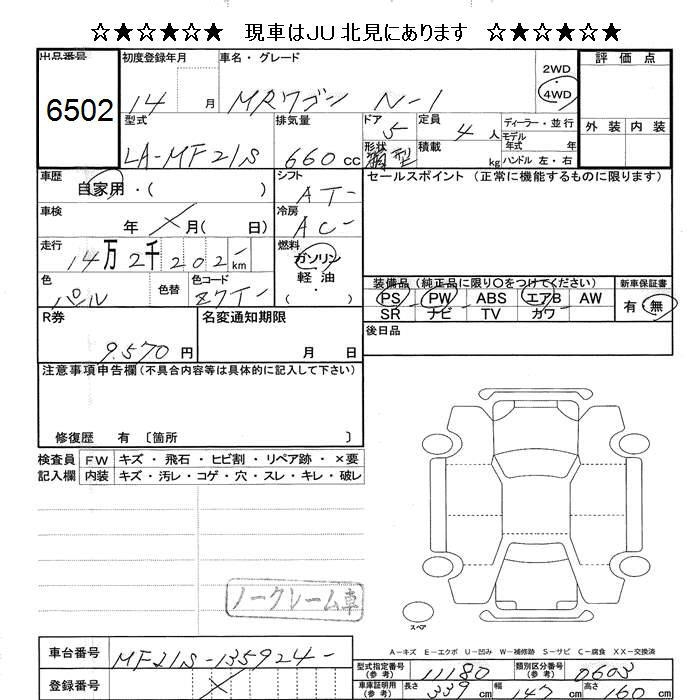 ☆★☆★☆★ 現車はJU北見にあります ☆★☆★☆★
出品番号 初度登録年月 車名・グレード 評価点
6502 14 月 MRワゴン N-1 2WD 4WD
型式 排気量 ドア 定員 ディーラー・並行 外装 内装
LA-MF21S 660cc 5 4人 モデル年式 年
形状 箱型 積載 kg ハンドル 左・右
車歴 自家用・( ) シフト AT- セールスポイント(正常に機能するものに限ります)
車検 年 月( 日) 冷房 AC-
走行 14万2千202- km 燃料 ガソリン 軽油 ・
色 パール 色替 色コード Z7T- 装備品(純正品に限り○をつけてください) 新車保証書
PS PW ABS エアB AW 有・無
SR ナビ TV カワ
R券 名変通知期限 後日品
9.570円 月 日
注意事項申告欄(不具合内容等は具体的に記入して下さい)
修復歴 有 〔箇所 〕
検査員 FW キズ・飛石・ヒビ割・リペア跡・×要
記入欄 内装 キズ・汚レ・コゲ・穴・スレ・キレ・破レ
ノークレーム車
スペア
A-キズ E-エクボ U-凹み W-補修跡 S-サビ C-腐食 XX-交換済
車台番号 MF21S-135924- 型式指定番号(参考) 11180 類別区分番号(参考) 0603
登録番号 車庫証明用(参考) 長さ 339cm 幅 147cm 高さ 160cm